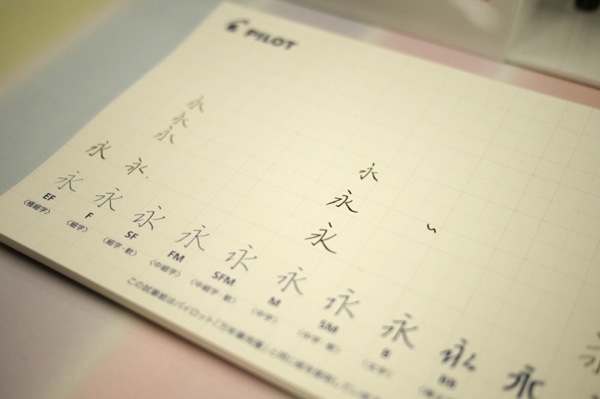 PILOT
永
永
永
永 永
永
永
永
永 永 永 永 永 永 永 永 永 永
EF F SF FM SFM M SM B BB
〈極細字〉 〈細字〉 〈細字・軟〉 〈中細字〉 〈中細字・軟〉 〈中字〉 〈中字・軟〉 〈太字〉
この試筆紙はパイロット「万年筆用箋」と同じ紙を使用してい